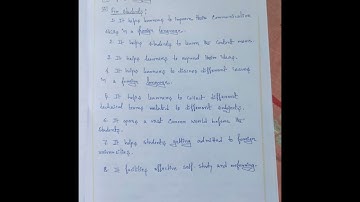 For Students:
1. It helps learning to improve their communicative
skills in a foreign language.
2. It helps students to learn the content more
3. It helps learning to expand their ideas.
4. It helps learning to discuss different
in a foreign language.
5. It helps learning to different
technical terms related to different subjects.
6. It opens a vast career world before the
students.
7. It helps students getting admitted to foreign
universities.
8. It facilities effective self-study and